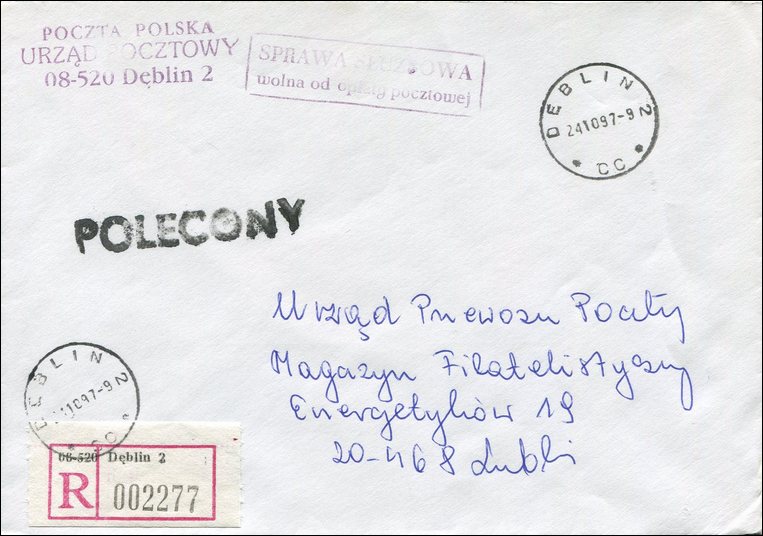 POCZTA POLSKA
URZĄD POCZTOWY
08-520 Dęblin 2
SPRAWA SŁUŻBOWA
wolna od opłaty pocztowej
DĘBLIN 2
241097-9
* CC *
POLECONY
Urząd Przewozu Poczty
Magazyn Filatelistyczny
Energetyków 19
20-468 Lubli
DĘBLIN 2
241097-9
* CC *
08-520 Dęblin 2
R 002277